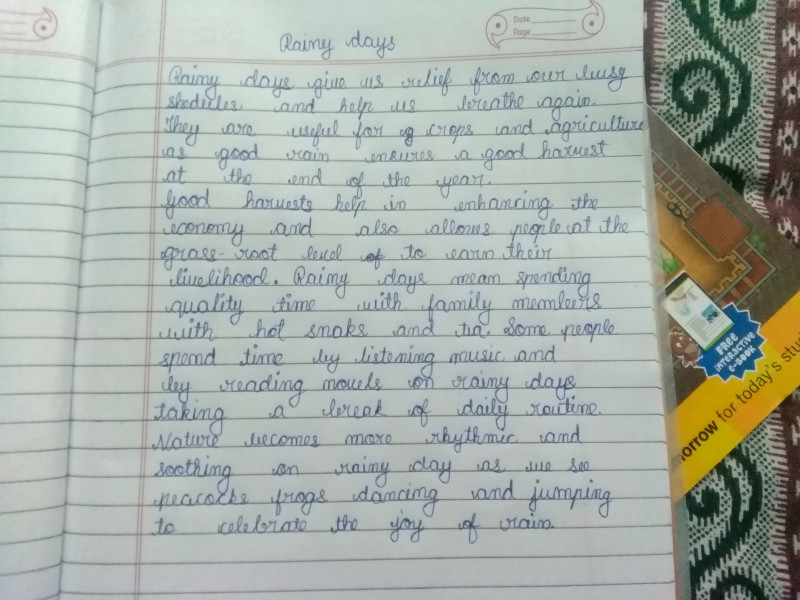 Date
Page
Rainy days
Rainy days give us relief from our busy
shedules and help us breathe again.
They are useful for crops and agriculture
as good rain ensures a good harvest
at the end of the year.
Good harvests help in enhancing the
economy and also allows people at the
grass-root level to earn their
livelihood. Rainy days mean spending
quality time with family members
with hot snaks and tea. Some people
spend time by listening music and
by reading novels on rainy days
taking a break of daily routine.
Nature becomes more rhythmic and
soothing on rainy day as we see
peacocks frogs dancing and jumping
to celebrate the joy of rain.
FREE
INTERACTIVE
E-BOOK
morrow for today's stu